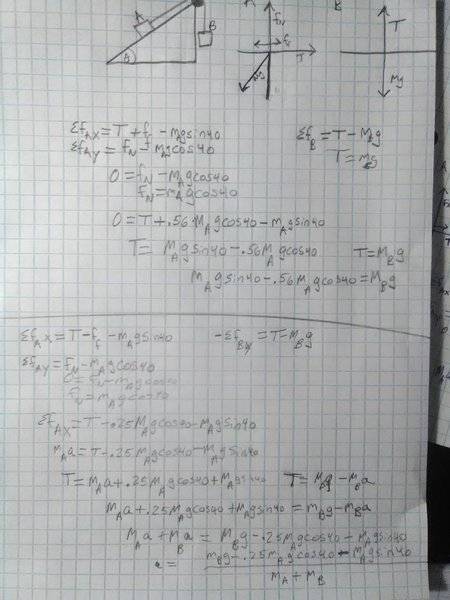 A
B
A
fN
ff
T
B
T
Mg
ΣfAX = T + ff - mAgsin40
ΣfB = T - MBg
ΣfAY = fN - mAgcos40
T = mBg
0 = fN - mAgcos40
fN = mAgcos40
0 = T + .56MAgcos40 - mAgsin40
T = MAgsin40 - .56MAgcos40
T = MBg
MAgsin40 - .56MAgcos40 = MBg
ΣfAX = T - ff - mAgsin40
-ΣfBY = T - MBg
ΣfAY = fN - mAgcos40
0 = fN - mAgcos40
fN = mAgcos40
ΣfAX = T - .25MAgcos40 - MAgsin40
mAa = T - .25MAgcos40 - MAgsin40
T = MAa + .25MAgcos40 + MAgsin40
T = MBg - MBa
MAa + .25MAgcos40 + MAgsin40 = mBg - MBa
MAa + MBa = MBg - .25MAgcos40 - MAgsin40
a = MBg - .25MAgcos40 - MAgsin40
MA + MB